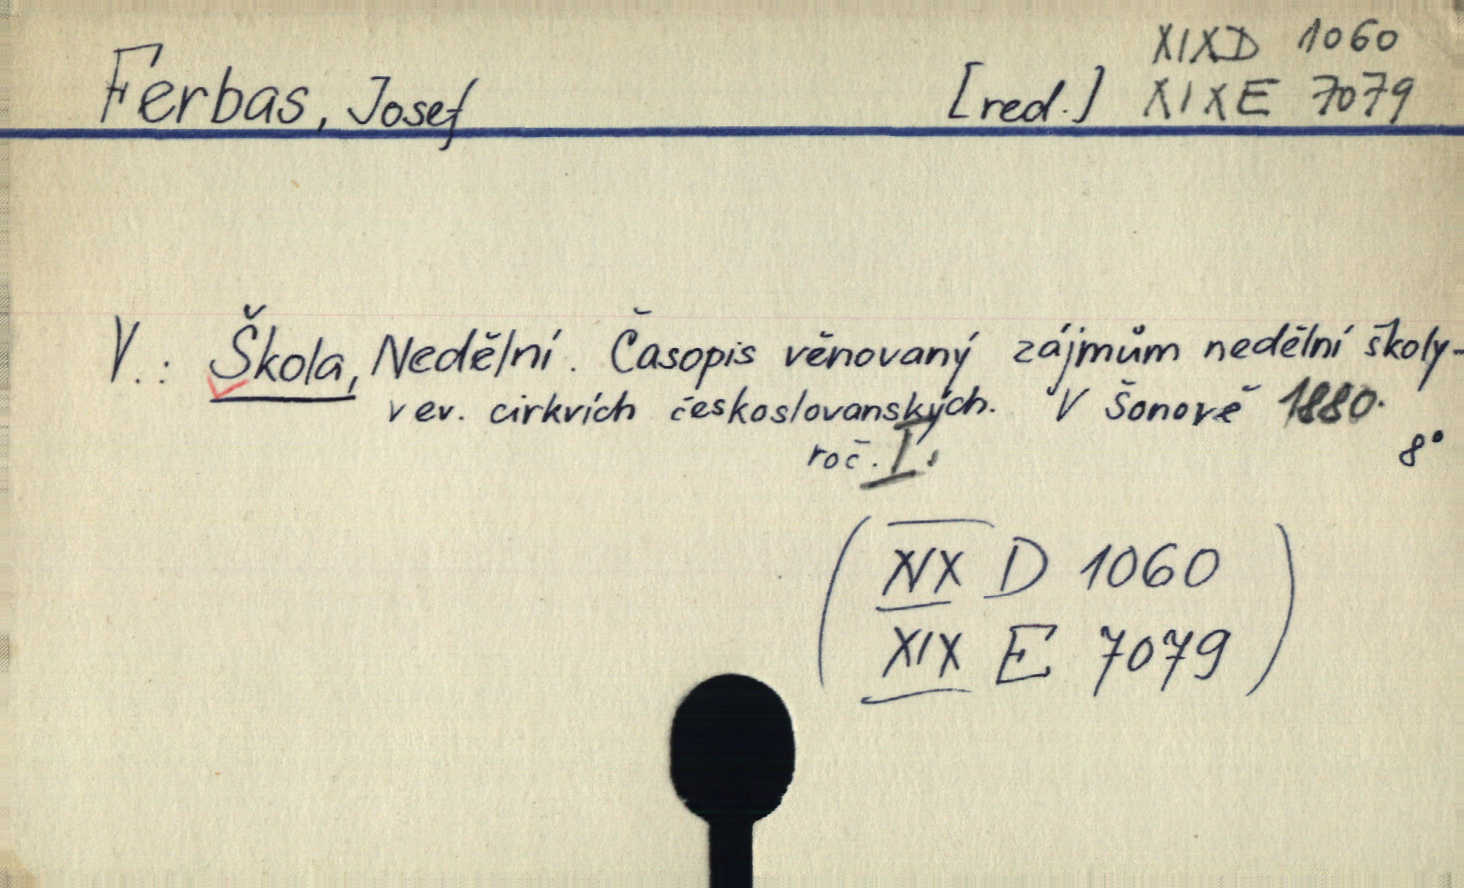 XIXD 1060
Ferbas, Josef [red.] XIXE 7079
V.: Škola, Nedělní. Časopis věnovaný zájmům nedělní školy-
v ev. cirkvích československoslovanských. V Šonově 1880.
roč. I. 8°
(XIX D 1060
XIX E 7079)